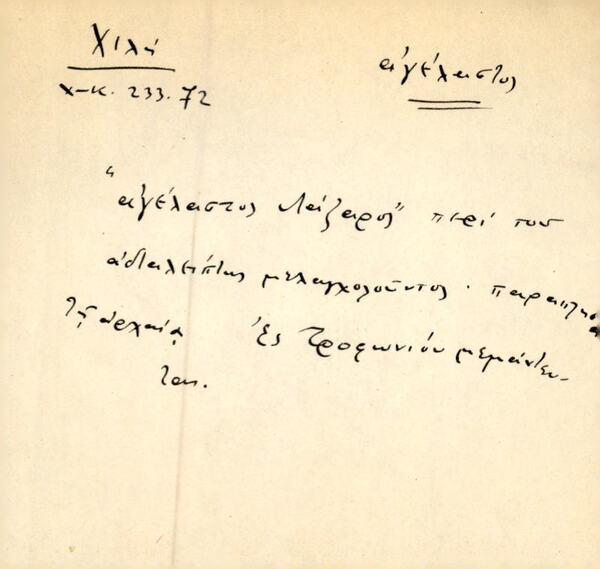 Χιλή
χ-κ. 233.72
ἀγέλαστος
"ἀγέλαστος Λάζαρος" περὶ τοῦ
ἀδιαλείπτως μελαγχολοῦντος. παραπλησ
τῇ ἀρχαίᾳ Ἐς Τροφωνίου μεμάντευ-
ται.